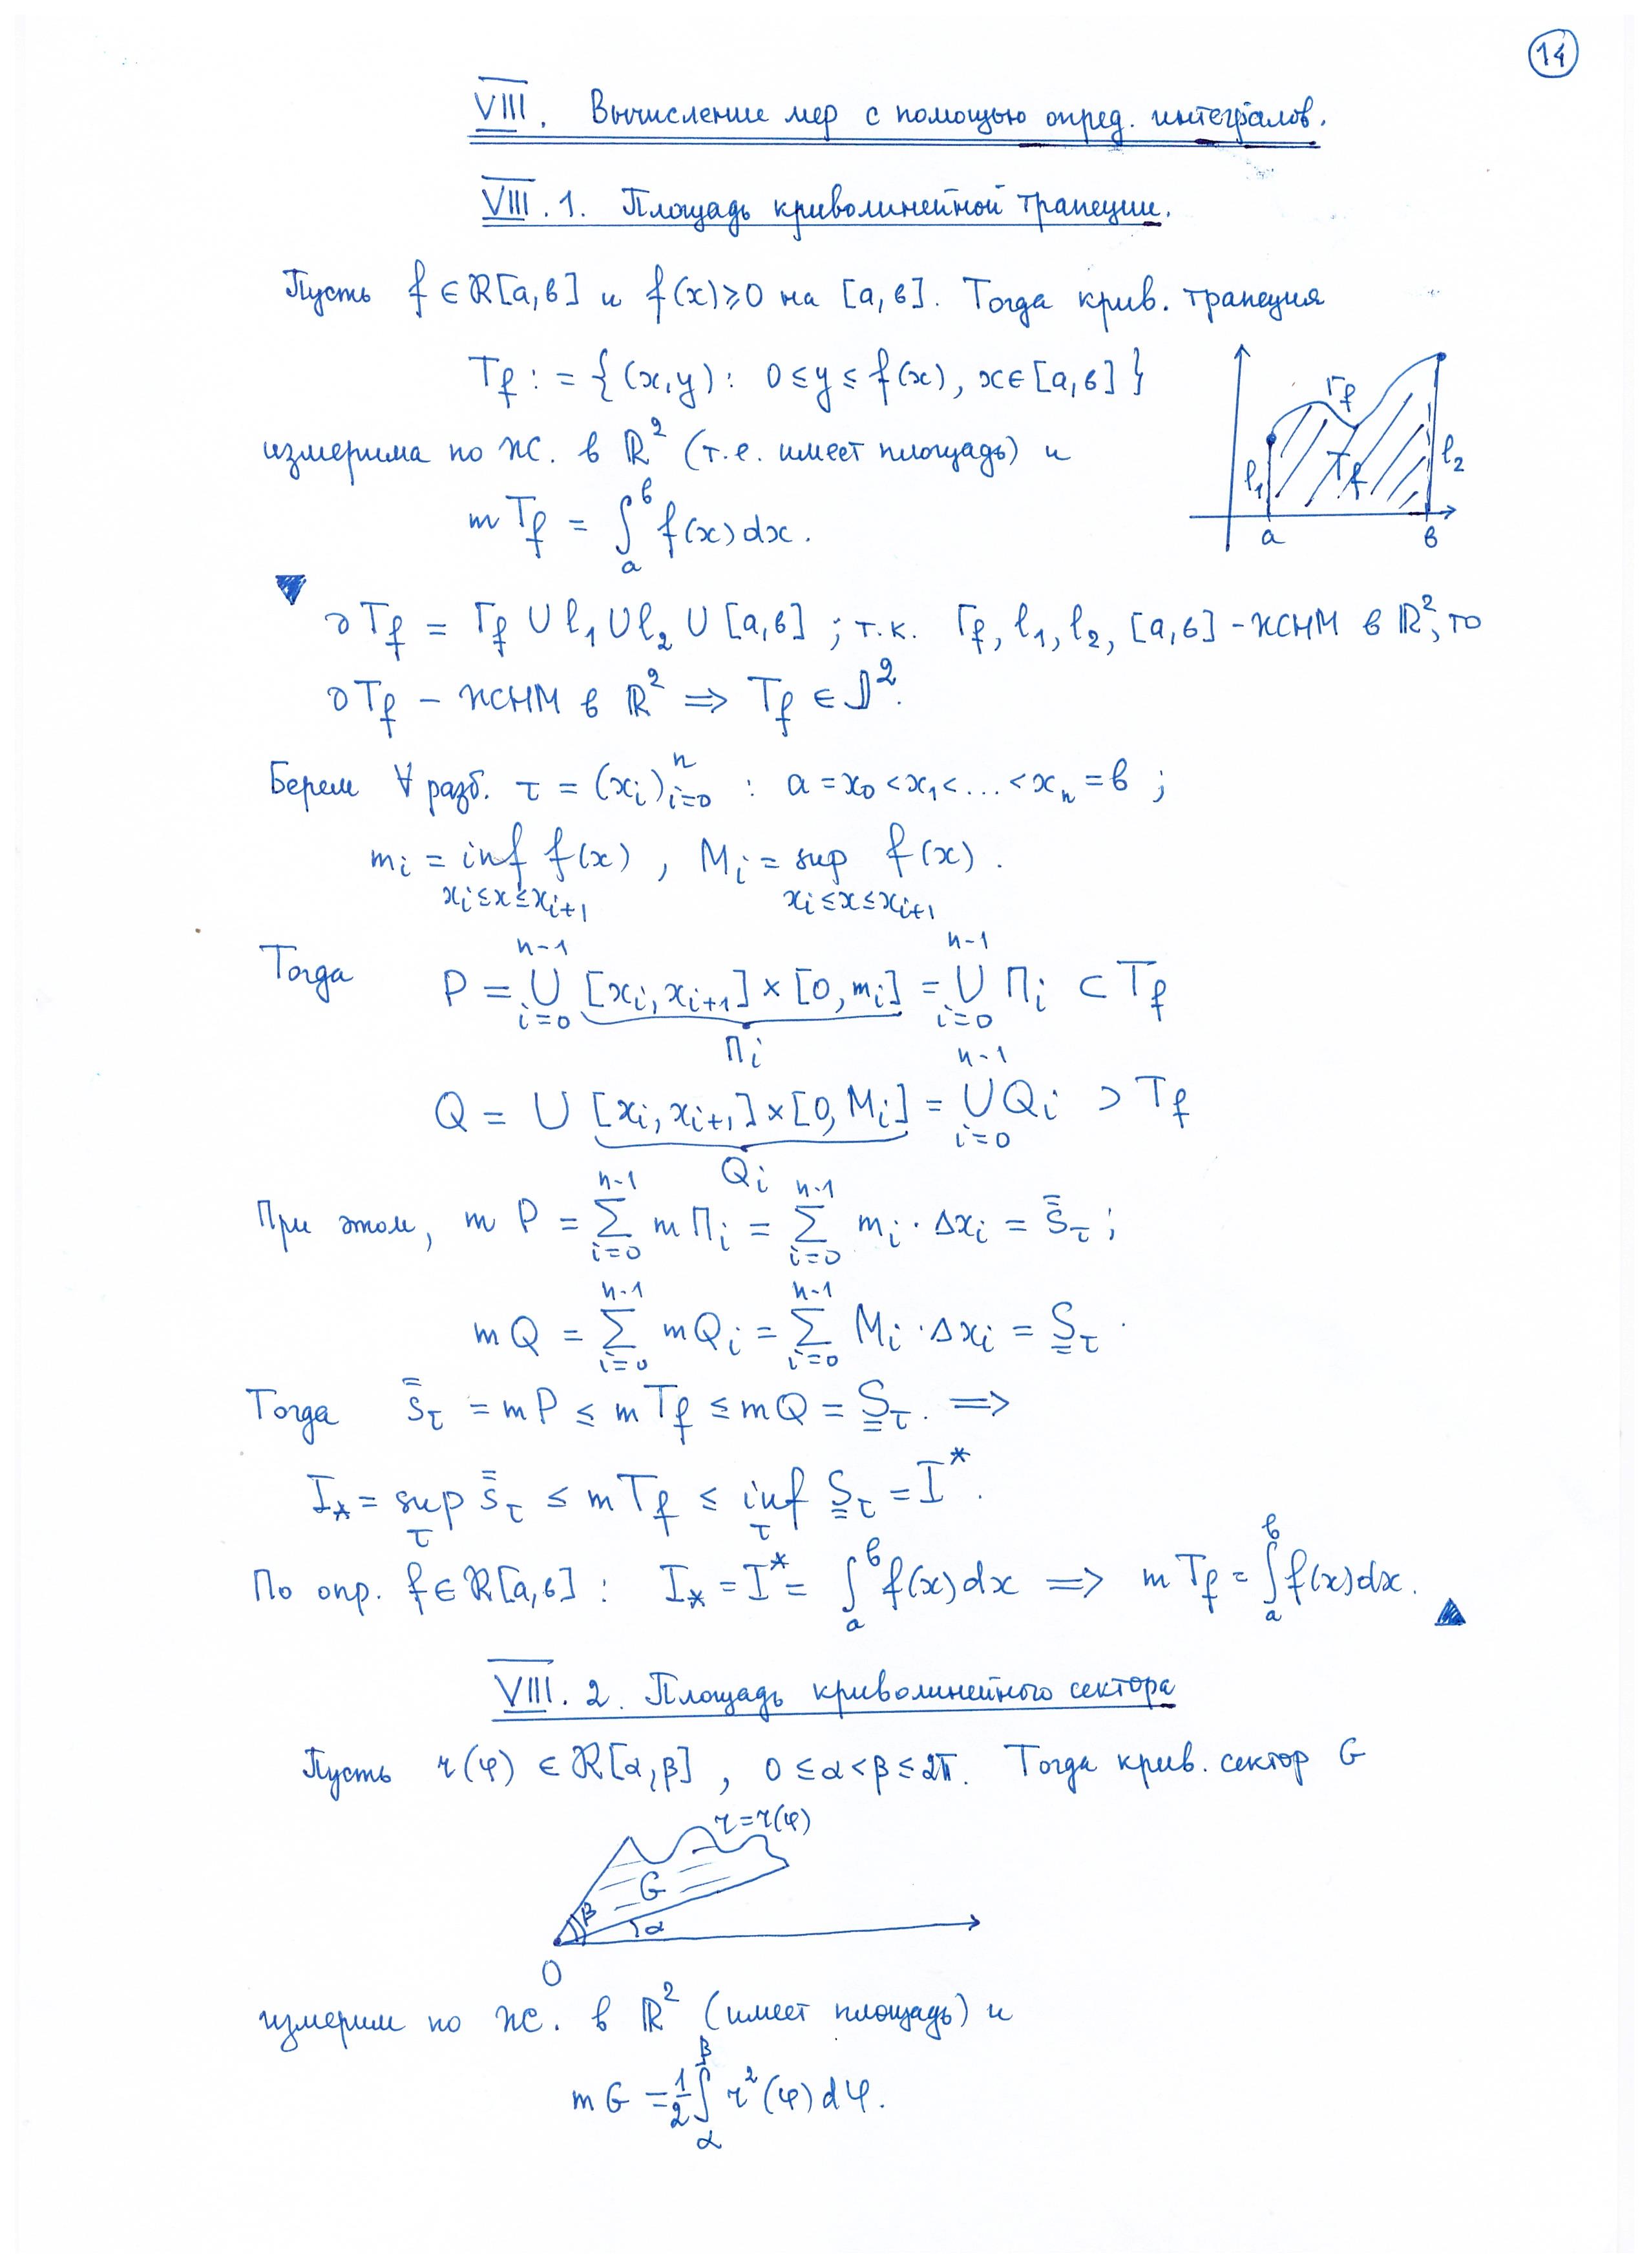 14
VIII. Вычисление мер с помощью опред. интегралов.
VIII.1. Площадь криволинейной трапеции.
Пусть f ∈ ℛ[a,в] и f(x)≥0 на [a,в]. Тогда крив. трапеция
T_f := {(x,y): 0≤y≤f(x), x∈[a,в]}
Γ_f
T_f
l₁
l₂
a
в
измерима по Ж. в ℝ² (т.е. имеет площадь) и
m T_f = ∫_a^в f(x)dx.
∂T_f = Γ_f ∪ l₁ ∪ l₂ ∪ [a,в]; т.к. Γ_f, l₁, l₂, [a,в] - ЖНМ в ℝ², то
∂T_f – ЖНМ в ℝ² ⇒ T_f ∈ J².
Берем ∀ разб. τ = (x_i)_{i=0}^n : a = x₀ < x₁ < ... < x_n = в ;
m_i = inf f(x) , M_i = sup f(x).
x_i≤x≤x_{i+1} x_i≤x≤x_{i+1}
Тогда P = ∪_{i=0}^{n-1} [x_i, x_{i+1}] × [0, m_i] = ∪_{i=0}^{n-1} Π_i ⊂ T_f
Π_i
Q = ∪ [x_i, x_{i+1}] × [0, M_i] = ∪_{i=0}^{n-1} Q_i ⊃ T_f
Q_i
При этом, m P = ∑_{i=0}^{n-1} m Π_i = ∑_{i=0}^{n-1} m_i · Δx_i = s̿_τ ;
m Q = ∑_{i=0}^{n-1} m Q_i = ∑_{i=0}^{n-1} M_i · Δx_i = S̳_τ.
Тогда s̿_τ = m P ≤ m T_f ≤ m Q = S̳_τ. ⇒
I_* = sup_τ s̿_τ ≤ m T_f ≤ inf_τ S̳_τ = I^*.
По опр. f ∈ ℛ[a,в] : I_* = I^* = ∫_a^в f(x)dx ⇒ m T_f = ∫_a^в f(x)dx.
VIII.2. Площадь криволинейного сектора
Пусть r(φ) ∈ ℛ[α,β], 0≤α<β≤2π. Тогда крив. сектор G
r=r(φ)
G
β
α
O
измерим по Ж. в ℝ² (имеет площадь) и
m G = 1/2 ∫_α^β r²(φ)dφ.